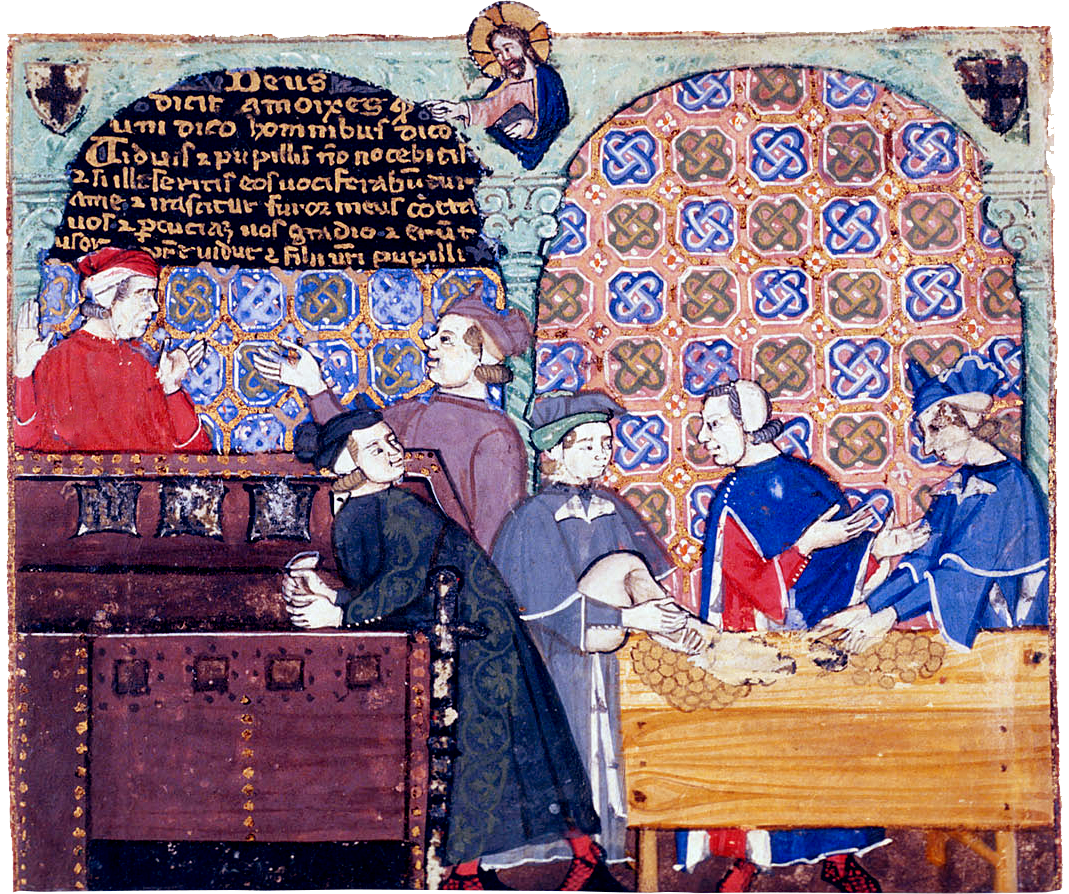 Deus
dicit amoixes q
uni dico hominibus dico
Viduis ⁊ pupillis nō nocebitis
⁊ si illeseritis eos vociferabūtur
ame ⁊ irascitur furor meus cōtra
uos ⁊ ꝑcuciaz uos gladio ⁊ erūt
uidue ⁊ filii uri pupilli